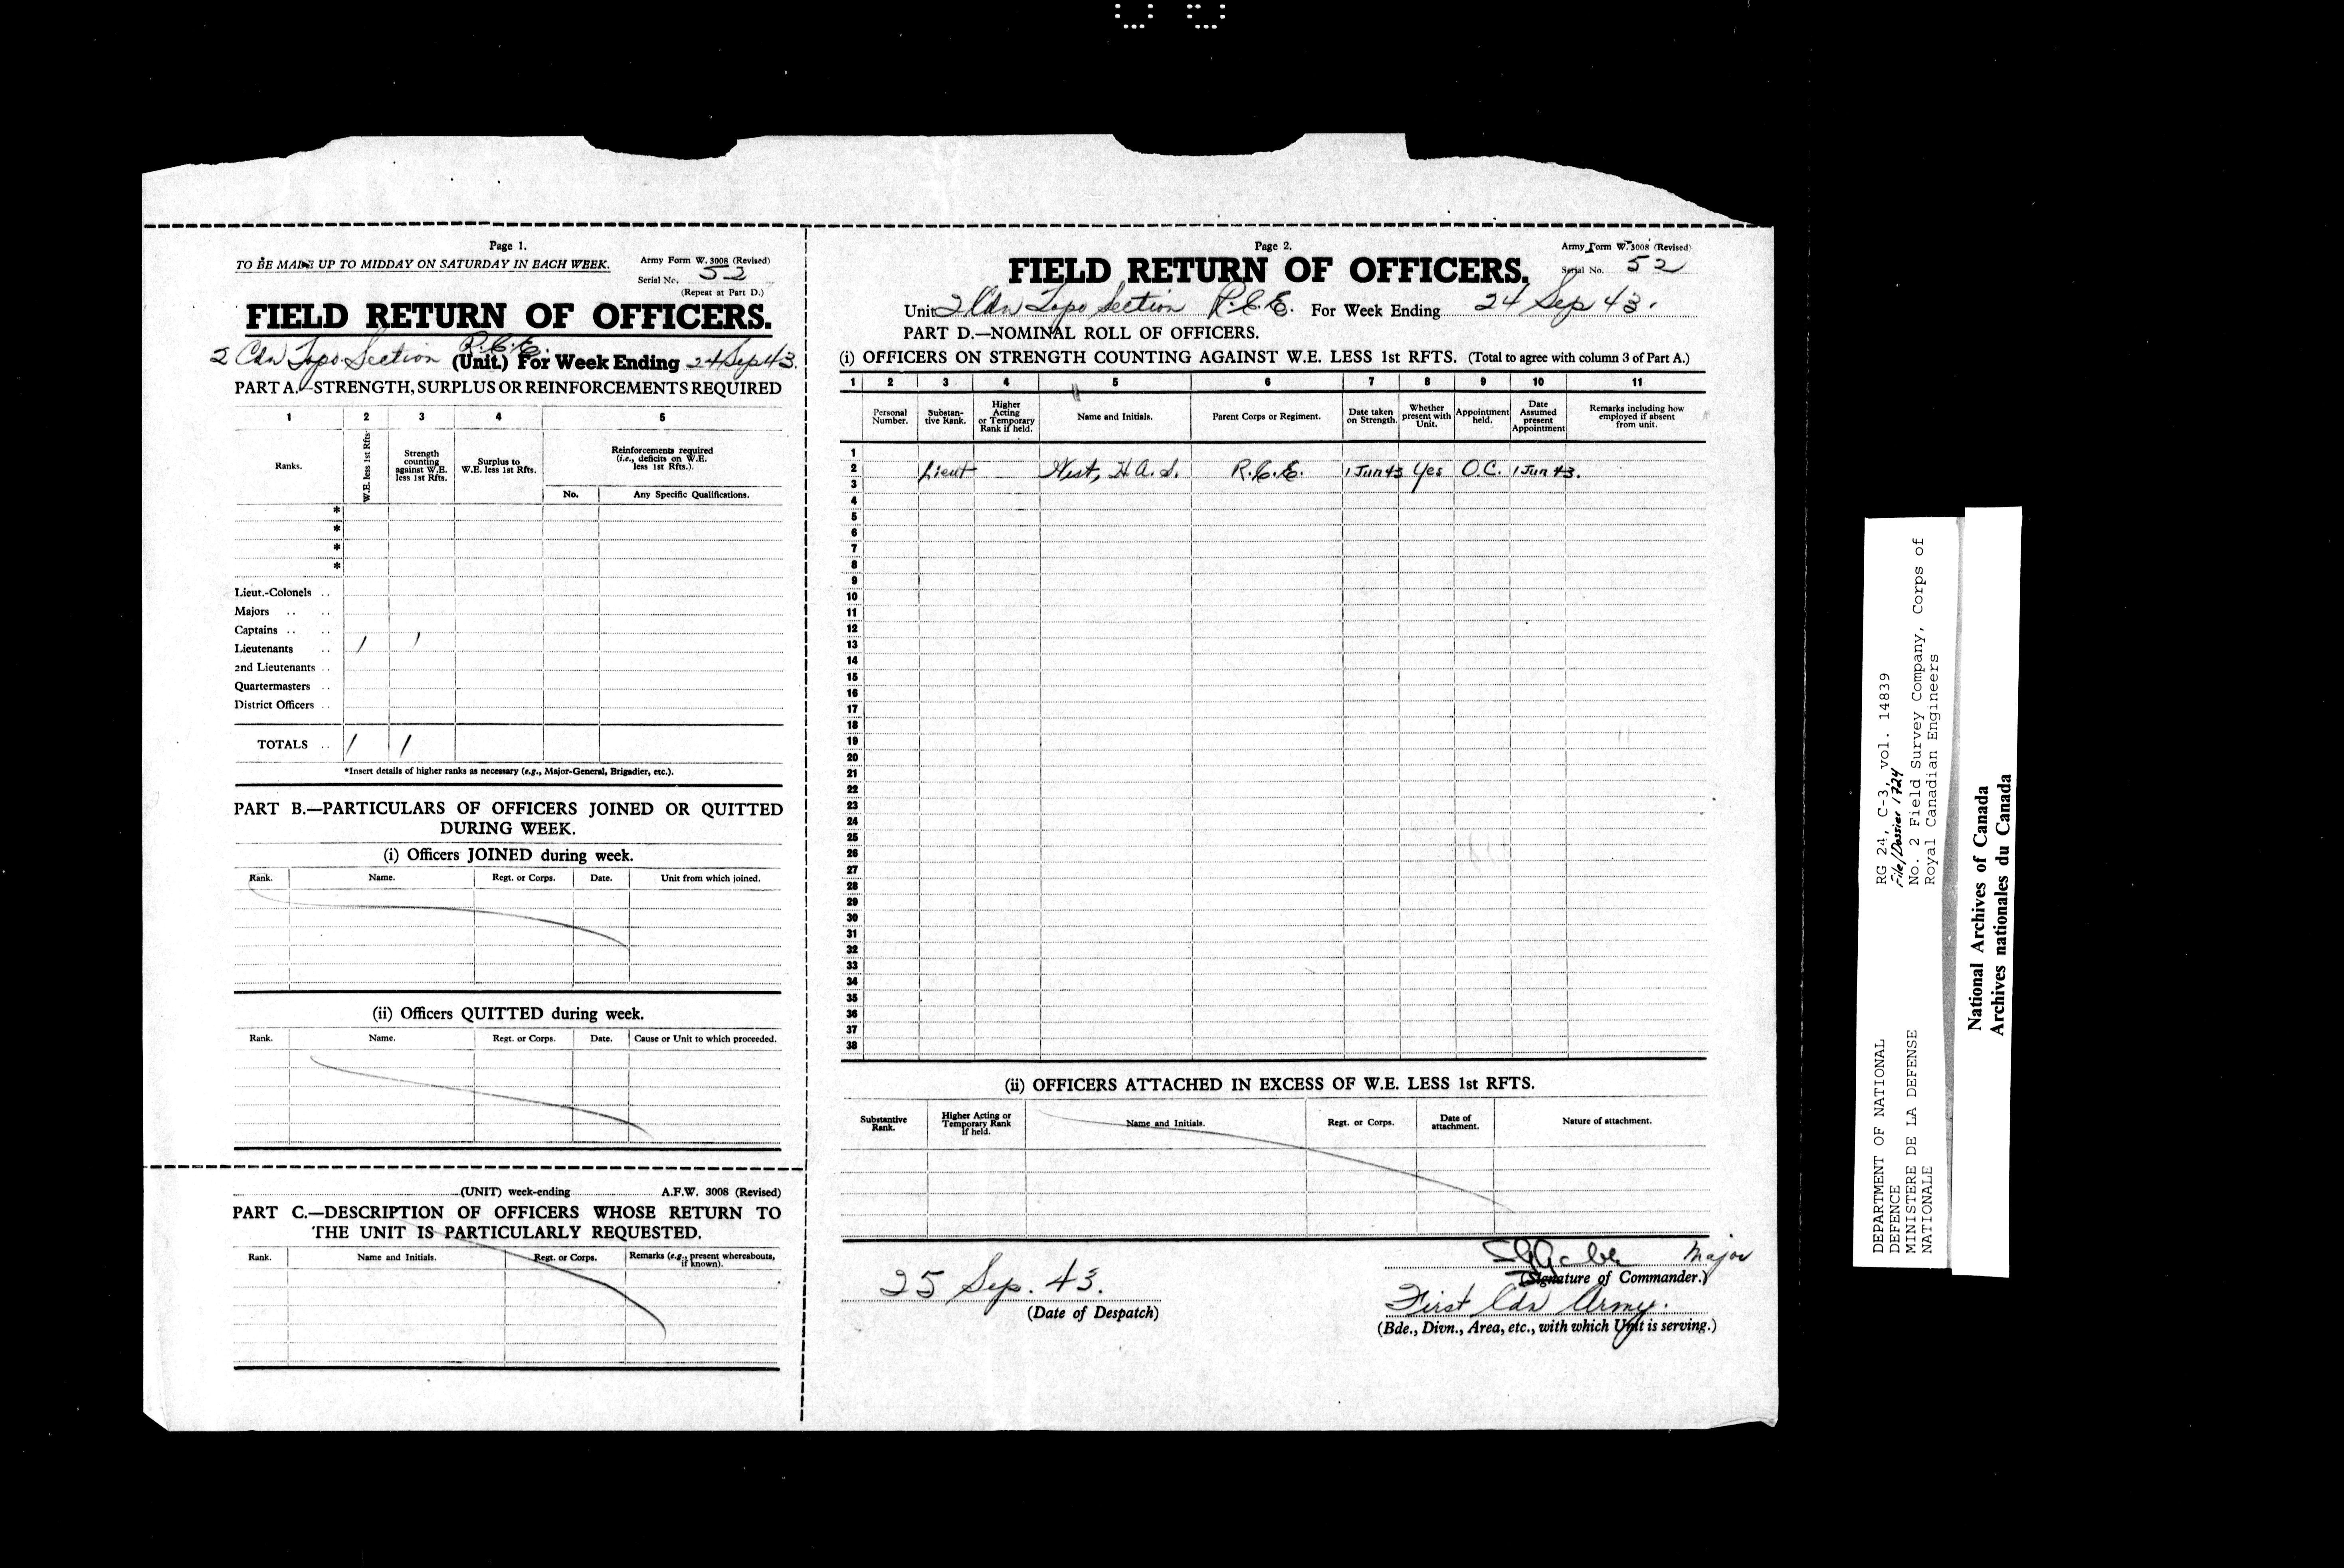 Page 1.
TO BE MADE UP TO MIDDAY ON SATURDAY IN EACH WEEK.
Army Form W. 3008 (Revised)
Serial No. 52
(Repeat at Part D.)
FIELD RETURN OF OFFICERS.
2 Cdn Topo Section R.C.E. (Unit.) For Week Ending 24 Sep 43.
PART A.—STRENGTH, SURPLUS OR REINFORCEMENTS REQUIRED
1 2 3 4 5
Ranks.
W.E. less 1st Rfts.
Strength counting against W.E. less 1st Rfts.
Surplus to W.E. less 1st Rfts.
Reinforcements required (i.e., deficits on W.E. less 1st Rfts.).
No. Any Specific Qualifications.
*
*
*
*
Lieut.-Colonels ..
Majors .. ..
Captains .. ..
Lieutenants .. 1 1
2nd Lieutenants ..
Quartermasters ..
District Officers ..
TOTALS .. 1 1
*Insert details of higher ranks as necessary (e.g., Major-General, Brigadier, etc.).
PART B.—PARTICULARS OF OFFICERS JOINED OR QUITTED
DURING WEEK.
(i) Officers JOINED during week.
Rank. Name. Regt. or Corps. Date. Unit from which joined.
(ii) Officers QUITTED during week.
Rank. Name. Regt. or Corps. Date. Cause or Unit to which proceeded.
(UNIT) week-ending A.F.W. 3008 (Revised)
PART C.—DESCRIPTION OF OFFICERS WHOSE RETURN TO
THE UNIT IS PARTICULARLY REQUESTED.
Rank. Name and Initials. Regt. or Corps. Remarks (e.g., present whereabouts, if known).
Page 2.
Army Form W. 3008 (Revised)
Serial No. 52
FIELD RETURN OF OFFICERS.
Unit 2 Cdn Topo Section R.C.E. For Week Ending 24 Sep 43.
PART D.—NOMINAL ROLL OF OFFICERS.
(i) OFFICERS ON STRENGTH COUNTING AGAINST W.E. LESS 1st RFTS. (Total to agree with column 3 of Part A.)
1 2 3 4 5 6 7 8 9 10 11
Personal Number.
Substantive Rank.
Higher Acting or Temporary Rank if held.
Name and Initials.
Parent Corps or Regiment.
Date taken on Strength.
Whether present with Unit.
Appointment held.
Date Assumed present Appointment
Remarks including how employed if absent from unit.
1
2 Lieut West, H.A.S. R.C.E. 1 Jun 43 Yes O.C. 1 Jun 43.
3
4
5
6
7
8
9
10
11
12
13
14
15
16
17
18
19
20
21
22
23
24
25
26
27
28
29
30
31
32
33
34
35
36
37
38
(ii) OFFICERS ATTACHED IN EXCESS OF W.E. LESS 1st RFTS.
Substantive Rank.
Higher Acting or Temporary Rank if held.
Name and Initials.
Regt. or Corps.
Date of attachment.
Nature of attachment.
25 Sep. 43.
(Date of Despatch)
Major
(Signature of Commander.)
First Cdn Army.
(Bde., Divn., Area, etc., with which Unit is serving.)
DEPARTMENT OF NATIONAL
DEFENCE
MINISTERE DE LA DEFENSE
NATIONALE
RG 24, C-3, vol. 14839
File/Dossier 1724
No. 2 Field Survey Company, Corps of
Royal Canadian Engineers
National Archives of Canada
Archives nationales du Canada